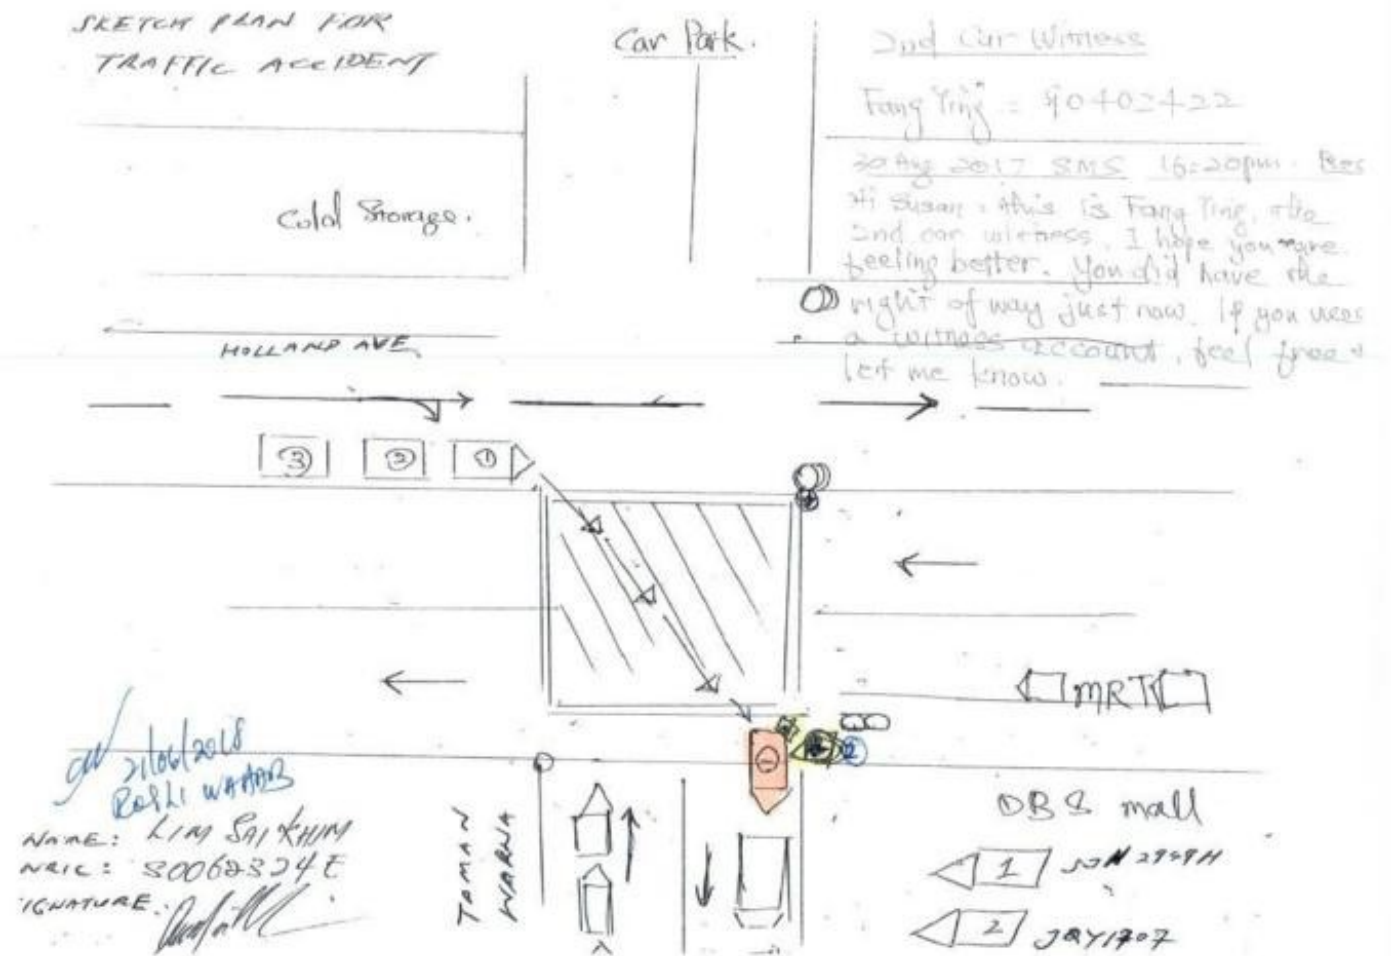 SKETCH PLAN FOR
TRAFFIC ACCIDENT
Car Park.
2nd Car Witness
Fang Ying = 90402422
30 Aug 2017 SMS 16:20pm.
Hi Susan, this is Fang Ying, the
2nd car witness. I hope you are
feeling better. You did have the
right of way just now. If you need
a witness account, feel free
let me know.
Cold Storage.
HOLLAND AVE
3 2 1
MRT
1 2
21/06/2018
ROSLI WAHAB
NAME: LIM SAI KHIM
NRIC: S0062324E
SIGNATURE:
TAMAN
WARNA
DBS mall
1 SJN 2959H
2 JQY1707